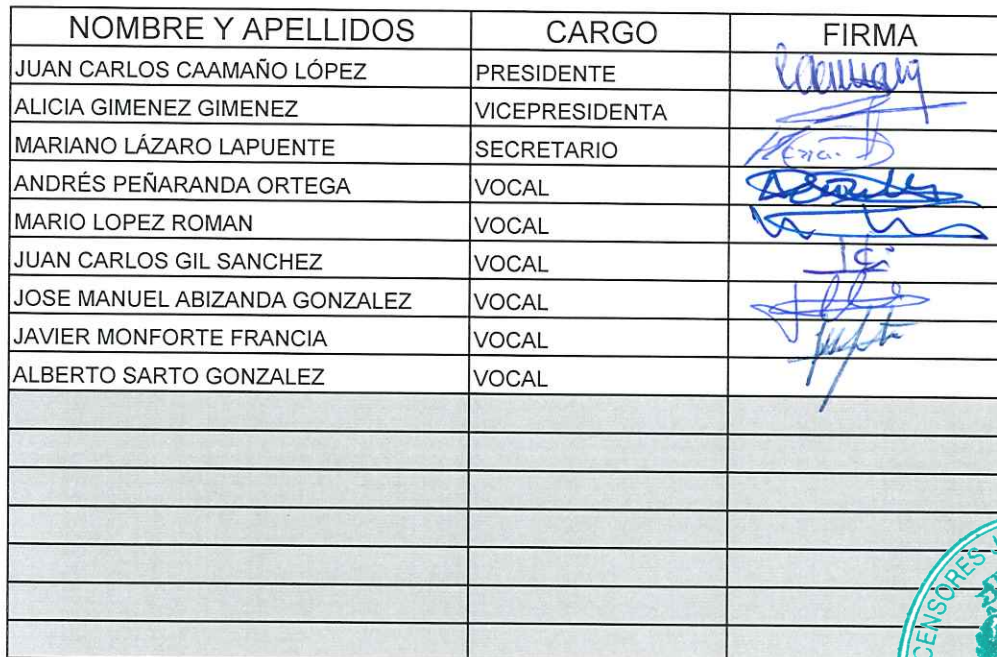 NOMBRE Y APELLIDOS CARGO FIRMA
JUAN CARLOS CAAMAÑO LÓPEZ PRESIDENTE
ALICIA GIMENEZ GIMENEZ VICEPRESIDENTA
MARIANO LÁZARO LAPUENTE SECRETARIO
ANDRÉS PEÑARANDA ORTEGA VOCAL
MARIO LOPEZ ROMAN VOCAL
JUAN CARLOS GIL SANCHEZ VOCAL
JOSE MANUEL ABIZANDA GONZALEZ VOCAL
JAVIER MONFORTE FRANCIA VOCAL
ALBERTO SARTO GONZALEZ VOCAL
CENSORES J